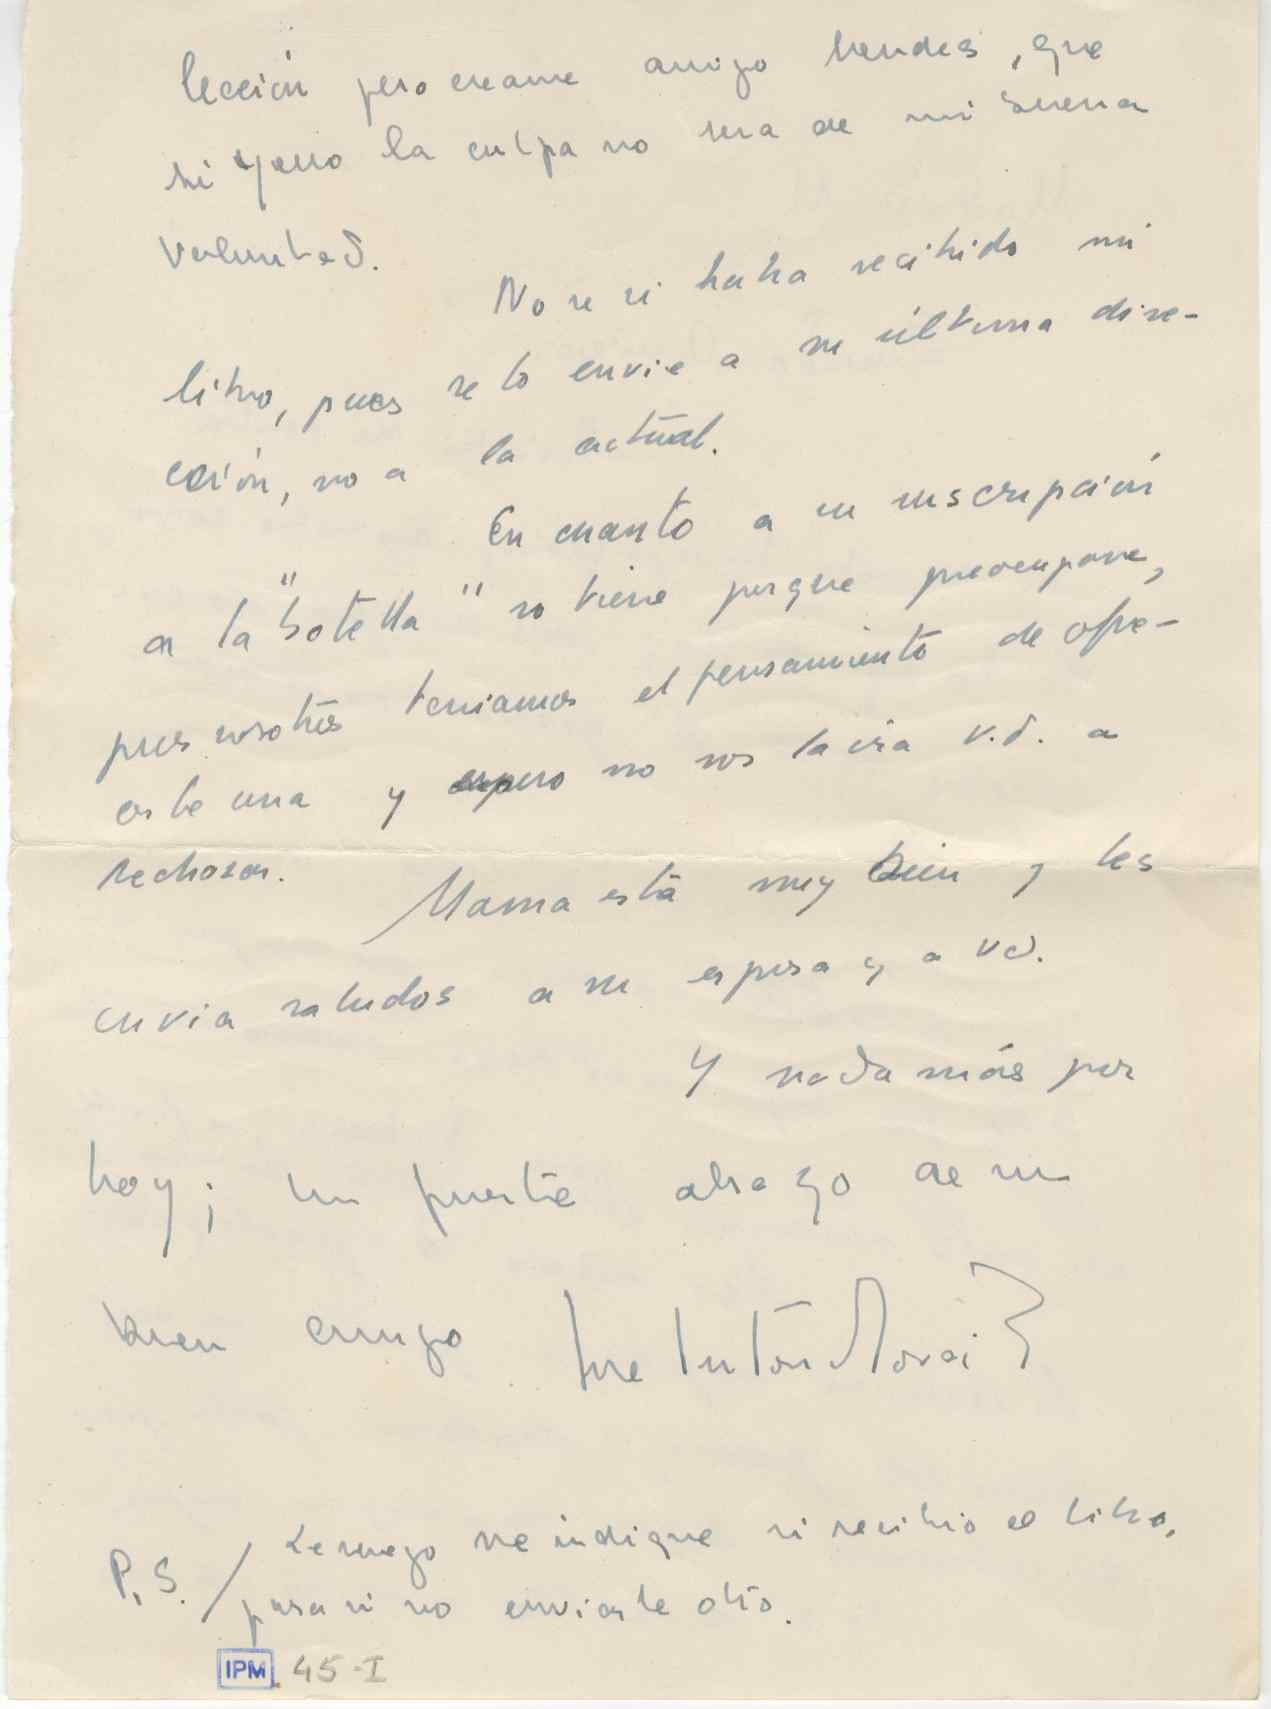 lección pero creame amigo Mendes, que
si yerro la culpa no sera de mi buena
voluntad.
No se si habra recibido mi
libro, pues se lo envie a su última dire-
ción, no a la actual.
En cuanto a su suscripción
a la "botella" no tiene porque preocuparse,
pues nosotros teniamos el pensamiento de ofre-
cerle una y espero no nos la ira v.d. a
rechazar.
Mama está muy bien y les
envia saludos a su esposa y a vd.
Y nada más por
hoy; un fuerte abrazo de su
buen amigo Jose Anton Novais
P.S. / Le ruego me indique si recibio el libro,
para si no enviarle otro.
IPM 45-I